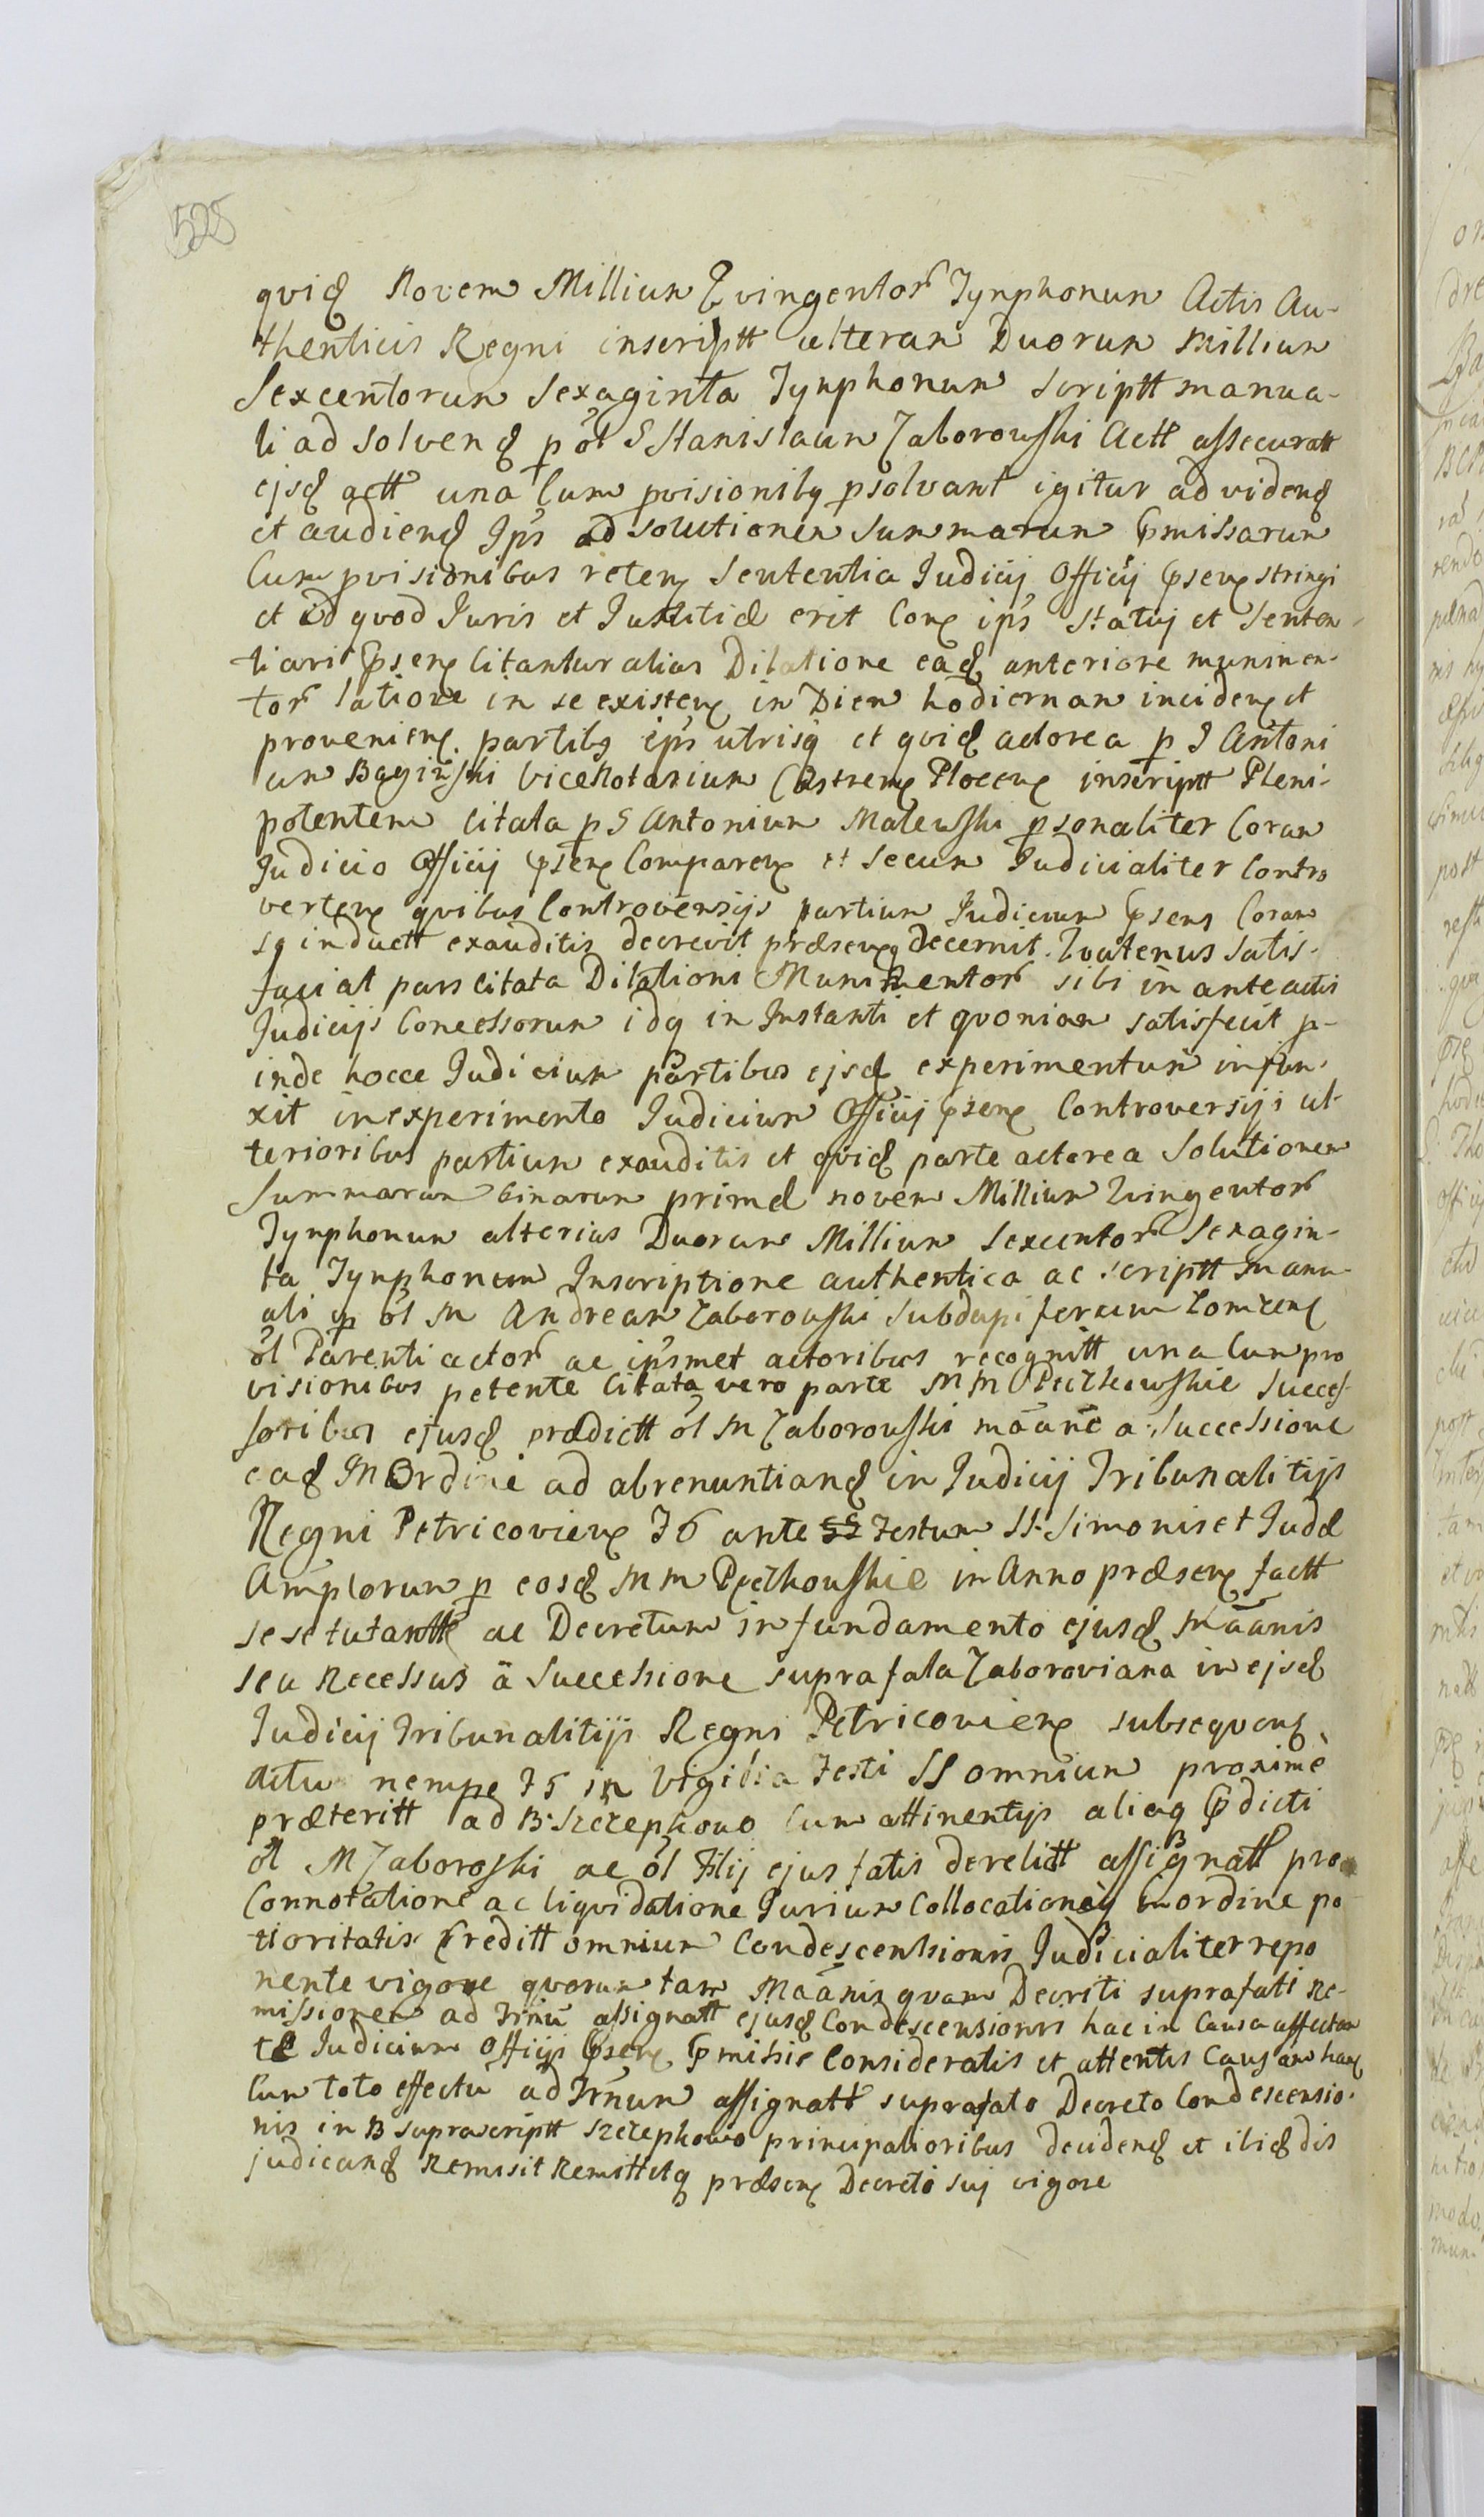 528
qvid Novem Millium Qvingentor Tynphonum Actis Au-
thenticis Regni inscriptt alteram Duorum Millium
Sexcentorum Sexaginta Tynphonum scriptt manua-
li ad solvend p ol S Stanislaum Zaborowski Actt assecuratt
ejsd actt una Cum pvisionibq psolvant igitur ad videnđ
et audienđ Ips ad solutionem summarum pmissarum
Cum pvisionibus reten Sententia Judicij Officij psen stringi
et id qvod Juris et Justitiæ erit Con ips Statuj et Senten-
tiari psen Citantur alias Dilatione eađ anteriore munimen-
tor latione in se existen in Diem hodiernam inciden et
provenien. partibq ips utrisq et qvid actorea p S Antoni
um Baginski ViceNotarium Castren Plocen inscriptt Pleni-
potentem Citata p S Antonium Malewski psonaliter Coram
Judicio Officij psen Comparen et secum Judicialiter Contro
verten qvibus Controversijs partium Judicium psens Coram
sq inductt exauditis decrevit præsenq decernit. Qvatenus satis-
faciat pars citata Dilationi Munimentor sibi in anteactis
Judicijs Concessorum idq in Instanti et qvoniam satisfecit p-
inde hocce Judicium partibus ejsd experimentum injun-
xit in experimento Judicium Officij psen Controversiji ul-
terioribus partium exauditis et qvid parte actorea Solutionem
Summarum binarum primæ novem Millium Qvingentor
Tynphonum alterius Duorum Millium Sexcentor Sexagin-
ta Tynphonum Inscriptione authentica ac scriptt manu-
ali p ol M Andream Zaborowski Subdapiferum Lomzen
ol Parenti actor ac ipsmet actoribus recognitt una Cum pro
visionibus petente Citata vero parte MM Succes-
soribus ejusđ prædictt ol M Zaborowski maane a Successione
eađ M Ordine ad abrenuntianđ in Judicij Tribunalitijs
Regni Petricovien F6 ante Festum SS. Simonis et Judæ
Amplorum p eosđ MM in Anno præsen factt
sese tutantte ac Decretum in fundamento ejusđ Maanis
seu Recessus a Successione suprafata Zaboroviana in ejsđ
Judicij Tribunalitijs Regni Petricovien subseqvenđ
actu nempe F6 in Vigilia Festi SS omnium proximè
præteritt ad B. Szczephowo Cum attinentijs alijsq pdicti
ol M Zaboroski ac ol Filij ejus fatis derelictt assignatt pro
Connotatione ac liqvidatione Jurium Collocationeq in ordine po
tioritatis Creditt omnium Condescensionis Judicialiter repo
nente vigore qvorum tam Maanis qvam Decreti suprafati Re-
missionem ad Trnū assignatt ejusđ Condescensionis hac in Causa affectan
te Judicium Officijs psen pmissis Consideratis et attentis Causam han
Cum toto effectu ad Trnum assignatt suprafato Decreto Condescensio-
nis in B suprascriptt Szczephowo principalioribus decidenđ et ibiđ dis
judicanđ Remisit Remittitq præsen Decreti suj vigore